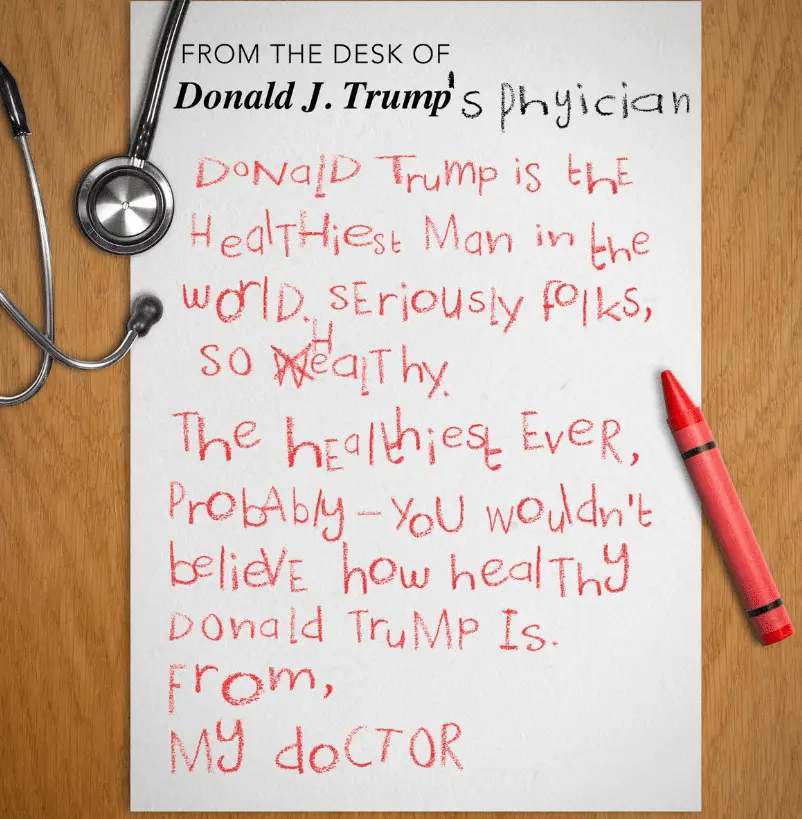 FROM THE DESK OF
Donald J. Trump's phyician
DoNalD Trump is thE
HealTHiest Man in the
worlD. SEriously folks,
so WHealThy.
The hEalthiest EveR,
ProbAbly – YoU wouldn't
believE how healThy
Donald TruMp Is.
From,
My doCTOR